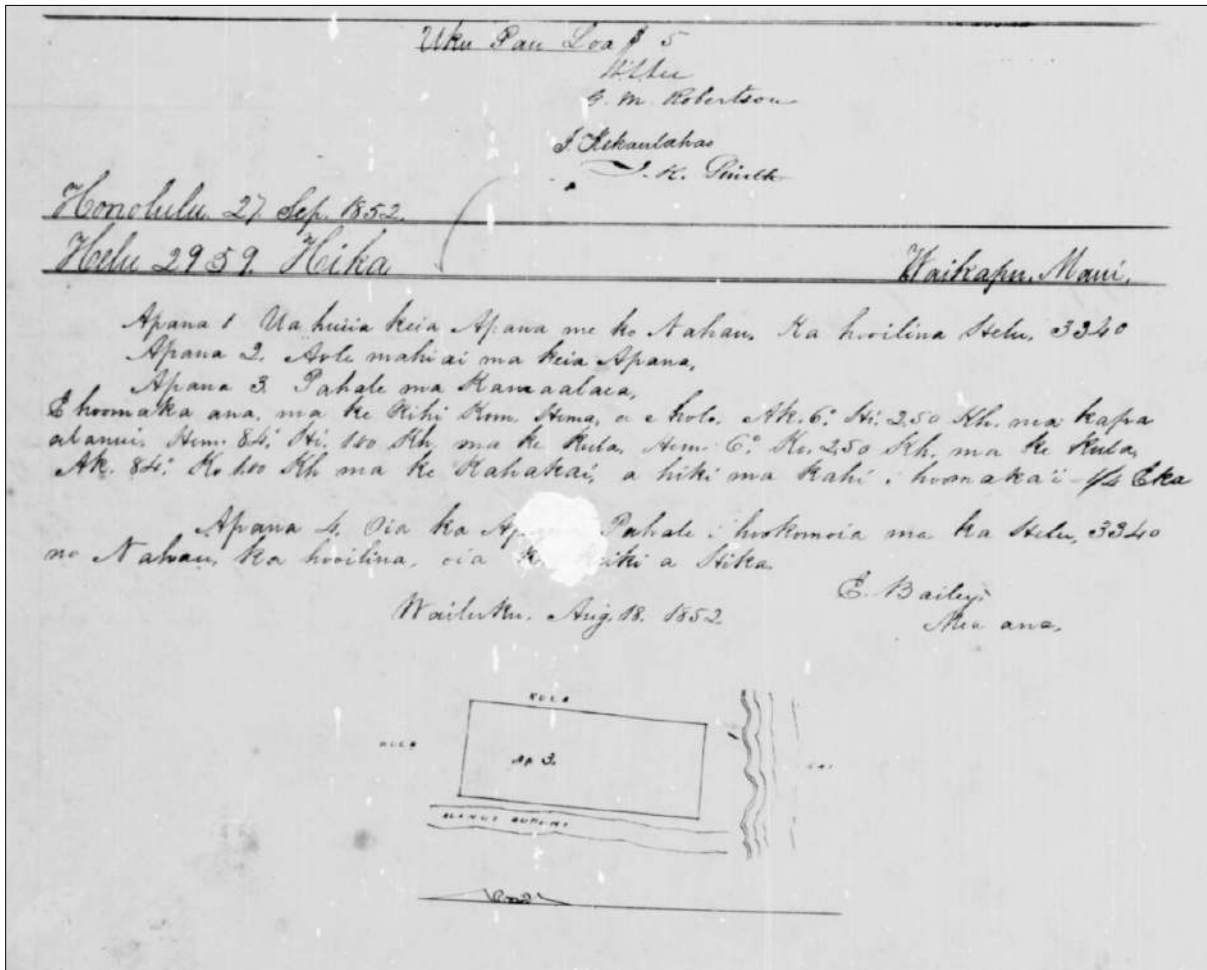 Uku Pau Loa $ 5
G. M. Robertson
J. Kekaulahao
Honolulu. 27. Sep. 1852.
Helu 2959. Hika
Waikapu. Maui.
Apana 1 Ua huiia keia Apana me ko Nahau. Ka hooilina Helu. 3340
Apana 2. Aole mahiai ma keia Apana.
Apana 3. Pahale ma Kamaalaea.
E hoomaka ana, ma ke Kihi Kom. Hema, a e holo. Ak. 6.° Hi. 2.50 Kh. ma kapa
alanui. Hem. 84.° Hi. 1.00 Kh. ma ke Kula. Hem. 6.° Ko. 2.50 Kh. ma ke Kula,
Ak. 84.° Ko 1.00 Kh ma ke Kahakai, a hiki ma kahi i hoomaka'i - 1/4 Eka
Apana 4. Oia ka Pahale i hookomoia ma ka Helu, 3340
no Nahau, ka hooilina, oia a Hika.
E. Bailey.
Wailuku. Aug. 18. 1852.
Mea ana.
KULA
KULA
Ap 3.
KAI
ALANUI AUPUNI